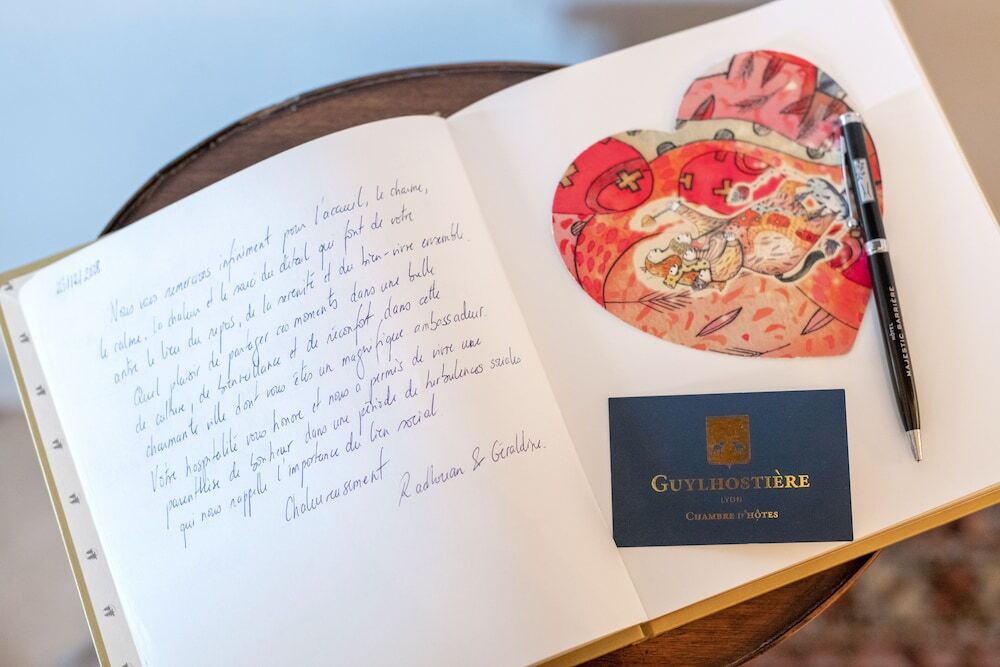 Nous vous remercions infiniment pour l'accueil, le charme,
le calme, la chaleur et le souci du détail qui font de votre
antre le lieu du repos, de la sérénité et du bien-vivre ensemble.
Quel plaisir de partager ces moments dans une bulle
de culture, de bienveillance et de réconfort, dans cette
charmante ville dont vous êtes un magnifique ambassadeur.
Votre hospitalité vous honore et nous a permis de vivre une
parenthèse de bonheur dans une période de turbulences sociales
qui nous rappelle l'importance du lien social.
Chaleureusement
Radhouan & Géraldine.
HÔTEL
MAJESTIC BARRIÈRE
GUYLHOSTIÈRE
LYON
CHAMBRE D'HÔTES